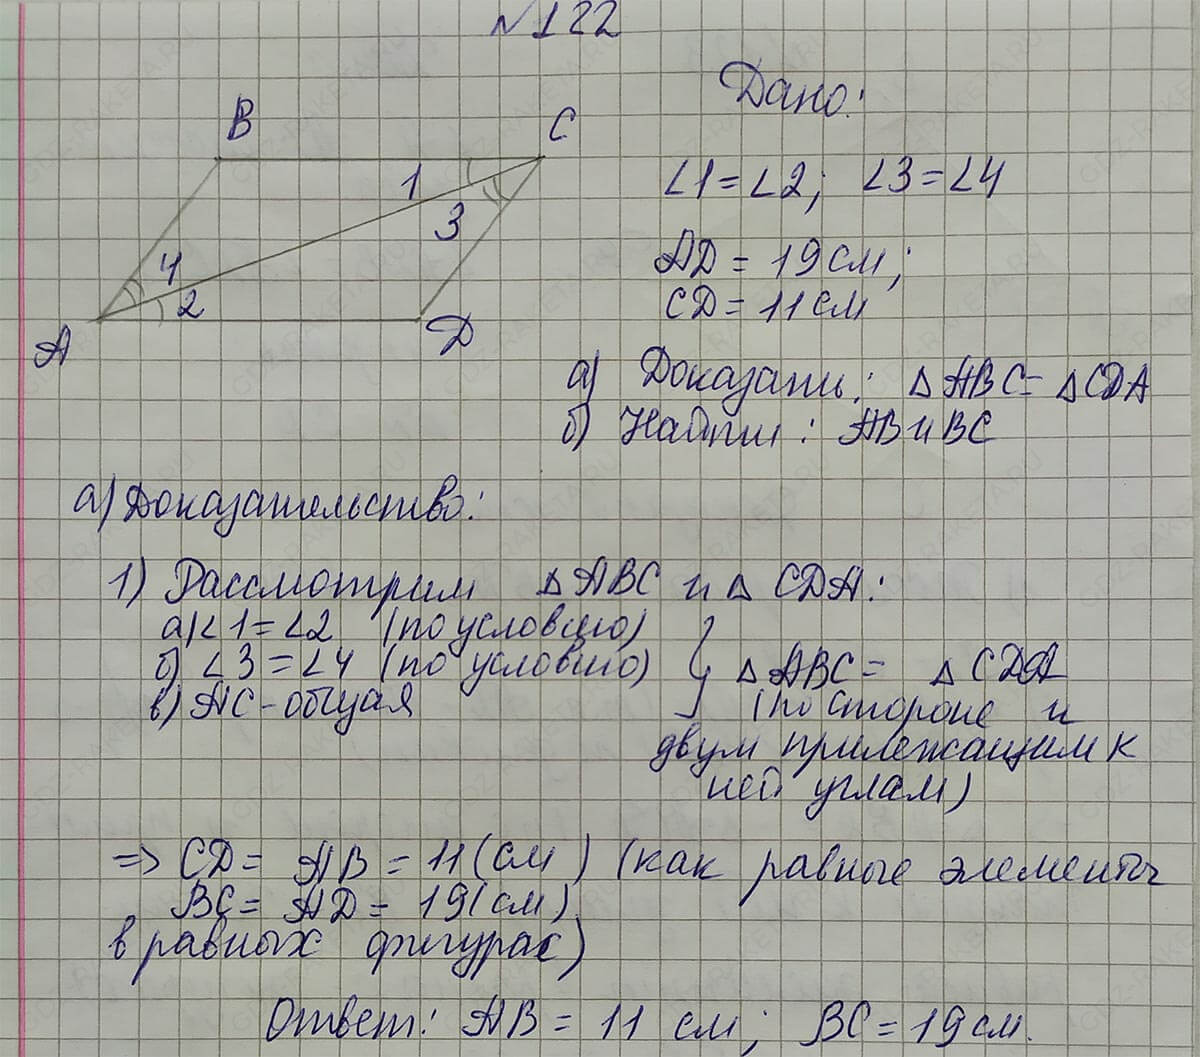 №122
B
C
1
3
4
2
A
D
Дано:
∠1=∠2; ∠3=∠4
AD = 19 см;
CD = 11 см
а) Доказать: △ABC= △CDA
б) Найти: AB и BC
а) Доказательство:
1) Рассмотрим △ABC и △ CDA:
а) ∠1=∠2 (по условию)
б) ∠3=∠4 (по условию)
в) AC - общая
} △ABC = △CDA
(по стороне и
двум прилежащим к
ней углам)
=> CD = AB = 11 (см) (как равные элементы
BC = AD = 19 (см)
в равных фигурах)
Ответ: AB = 11 см; BC = 19 см.
GDZ-RAKETA.RU